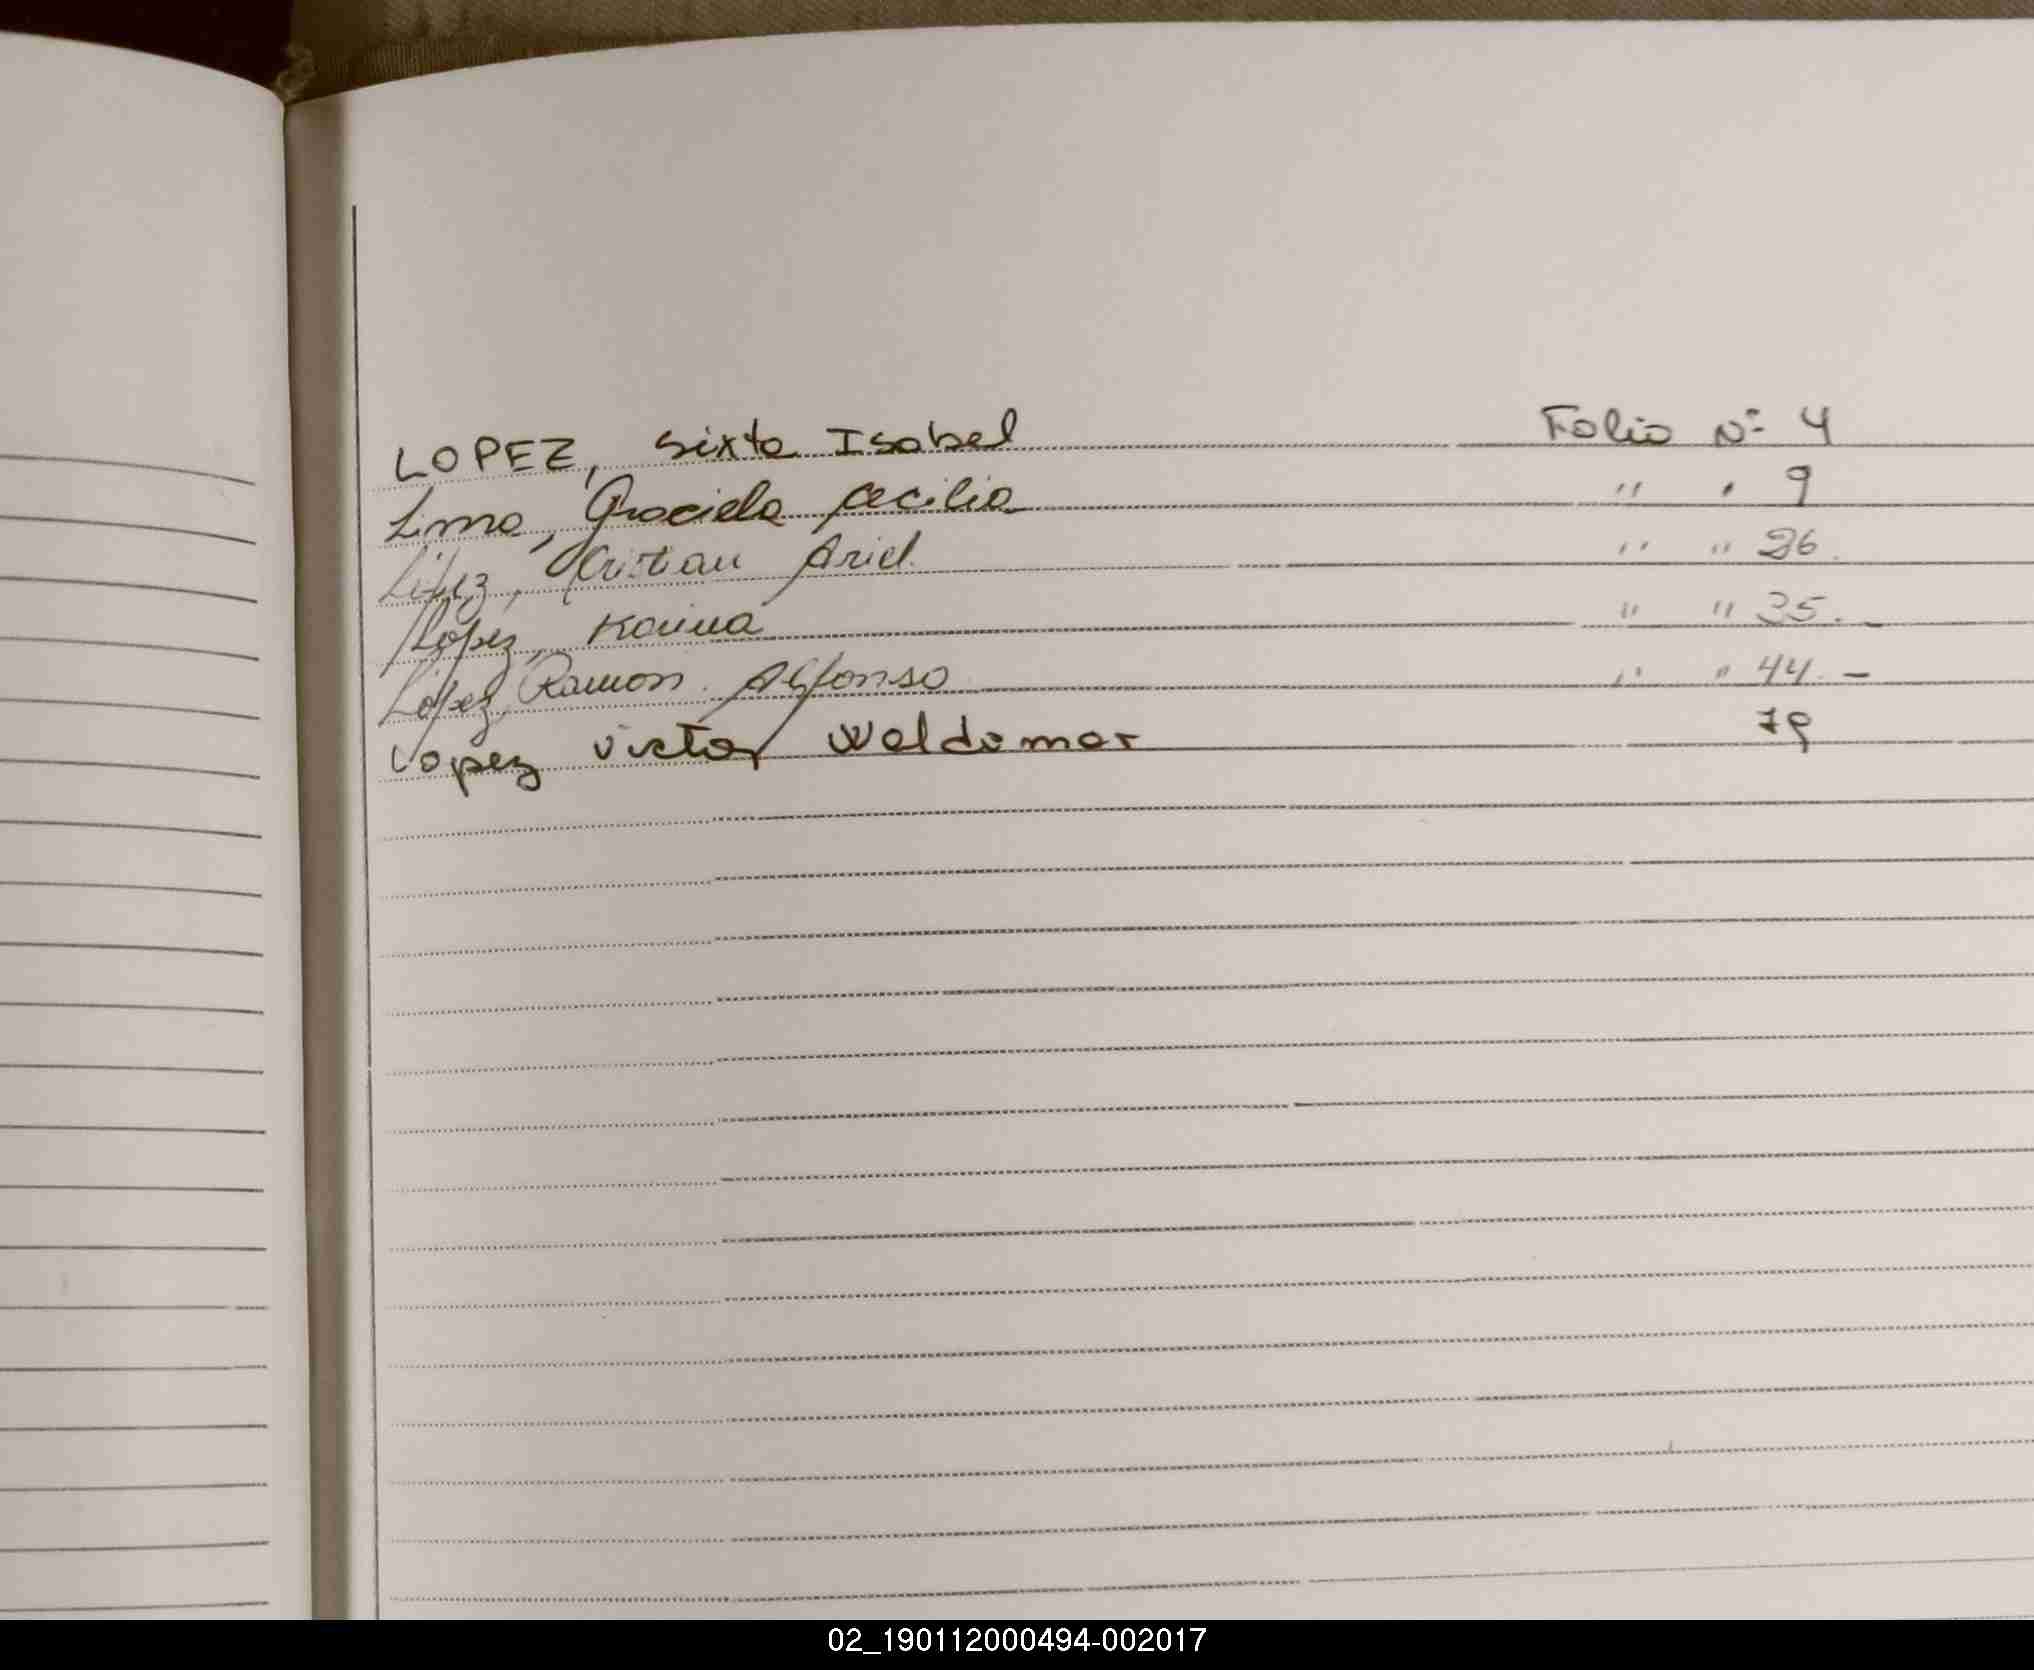 LOPEZ, Sixta Isabel Folio Nº 4
Lima, Graciela Cecilia " " 9
Cristian Ariel. " " 26.
López, Karina " " 35. -
López, Ramon Alfonso " " 44. -
Lopez Victor Waldemar 79
02_190112000494-002017